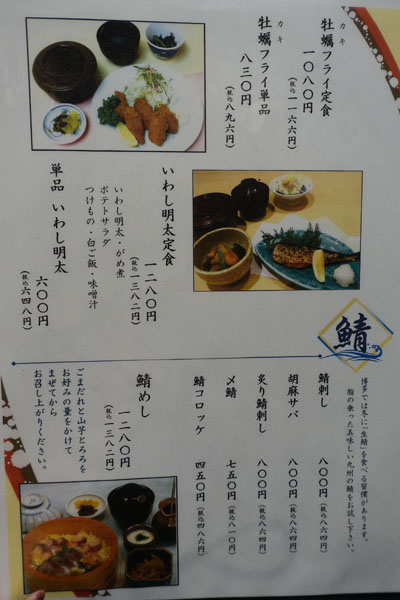 カキ
牡蠣フライ定食
一〇八〇円
(税込一一六六円)
カキ
牡蠣フライ単品
八三〇円
(税込八九六円)
いわし明太定食
一二八〇円
(税込一三八二円)
いわし明太・がめ煮
ポテトサラダ
つけもの・白ご飯・味噌汁
単品 いわし明太
六〇〇円
(税込六四八円)
鯖
博多では冬に「生鯖」を食べる習慣があります。
脂の乗った美味しい九州の鯖をお試し下さい。
鯖刺し 八〇〇円(税込八六四円)
胡麻サバ 八〇〇円(税込八六四円)
炙り鯖刺し 八〇〇円(税込八六四円)
〆鯖 七五〇円(税込八一〇円)
鯖コロッケ 四五〇円(税込四八六円)
鯖めし
一二八〇円
(税込一三八二円)
ごまだれと山芋とろろを
お好みの量をかけて
まぜてから
お召し上がりください。